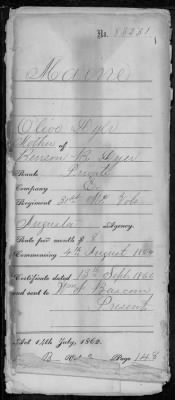 No. 88231
Maine
Olive Dyer
Mother of
Benson B. Dyer
Rank Private
Company E
Regiment 31st Me Vols
Augusta Agency.
Rate per month $ 8
Commencing 4th August 1864
Certificate dated 13th Sept 1866
and sent to Wm
Present
Act 14th July, 1862.
B Page 148